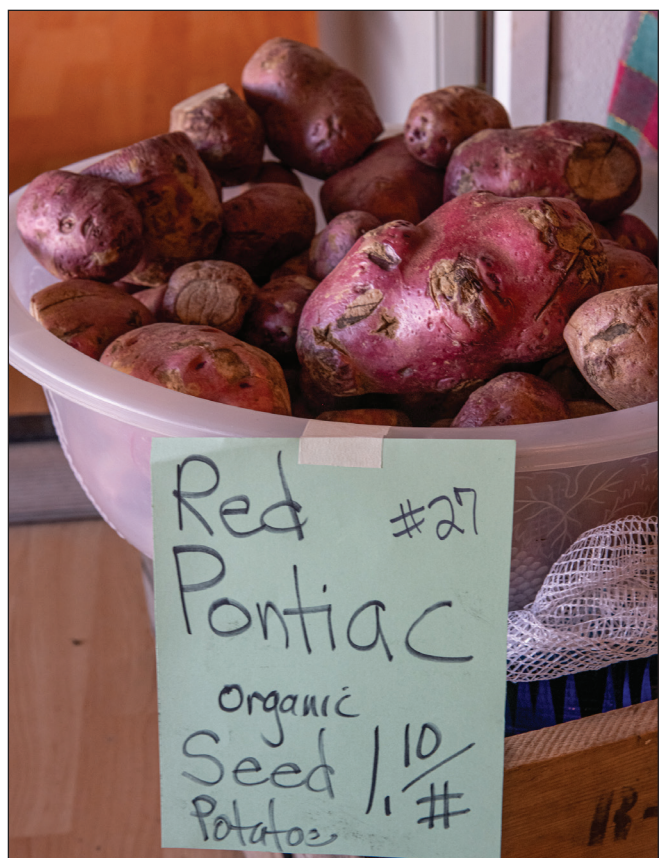 Red #27
Pontiac
organic
Seed 1.10/#
Potatoes